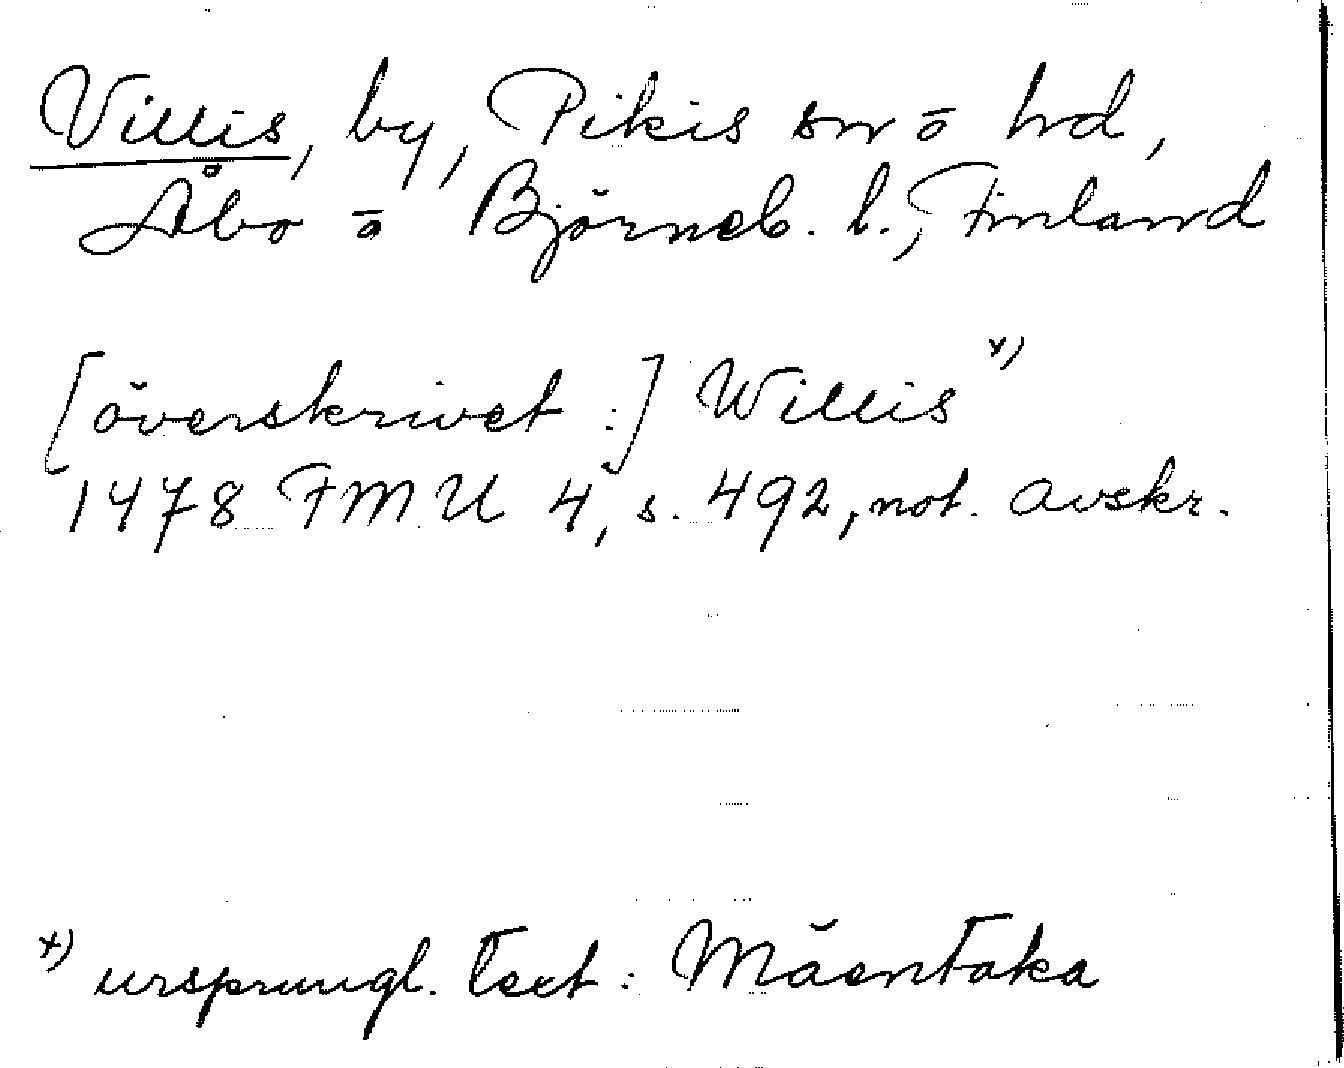 Villis, by, Pikis sn o hd,
Åbo o Björneb. l., Finland
[överskrivet :] Willis x)
1478 FMU 4, s. 492, not. avskr.
x) ursprungl. text : Mäentaka